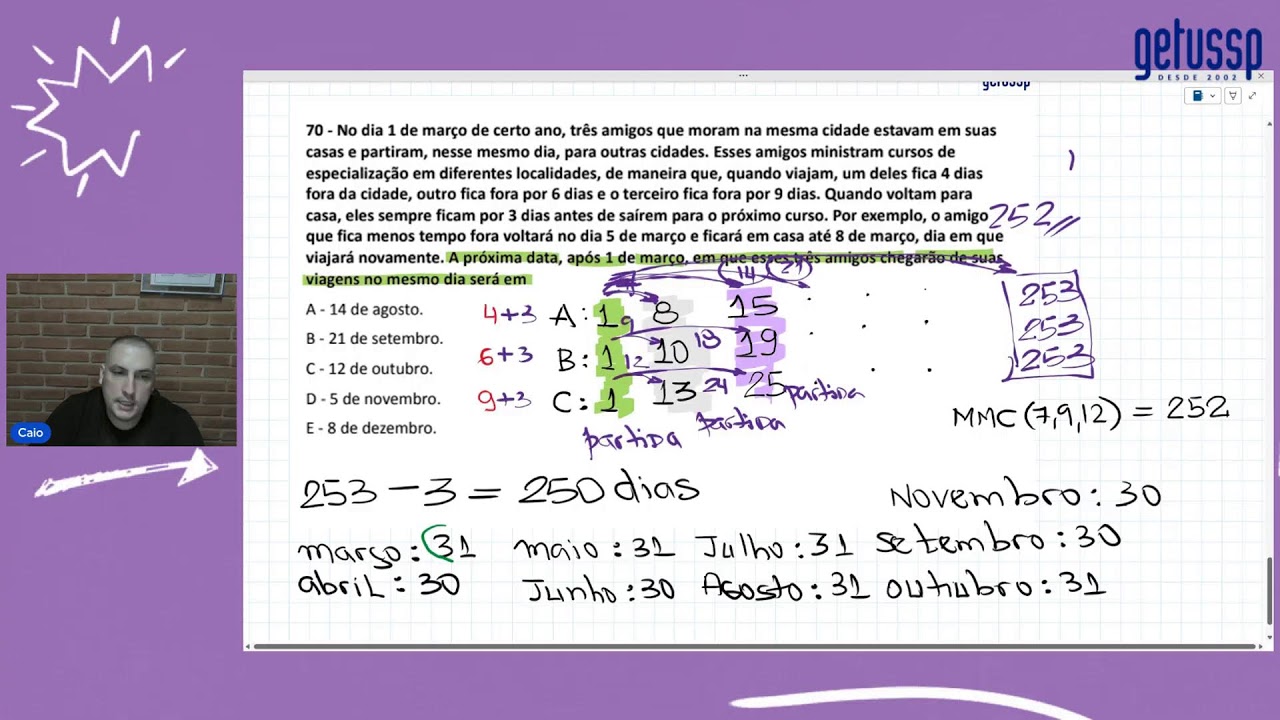 getussp
DESDE 2002
getussp
70 - No dia 1 de março de certo ano, três amigos que moram na mesma cidade estavam em suas
casas e partiram, nesse mesmo dia, para outras cidades. Esses amigos ministram cursos de
especialização em diferentes localidades, de maneira que, quando viajam, um deles fica 4 dias
fora da cidade, outro fica fora por 6 dias e o terceiro fica fora por 9 dias. Quando voltam para
casa, eles sempre ficam por 3 dias antes de saírem para o próximo curso. Por exemplo, o amigo
que fica menos tempo fora voltará no dia 5 de março e ficará em casa até 8 de março, dia em que
viajará novamente. A próxima data, após 1 de março, em que esses três amigos chegarão de suas
viagens no mesmo dia será em
252
A - 14 de agosto.
B - 21 de setembro.
C - 12 de outubro.
D - 5 de novembro.
E - 8 de dezembro.
14 21
4+3 A: 1 8 15 . . . 253
6+3 B: 1 9 10 18 19 . . . 253
9+3 C: 1 12 13 24 25 partida . . 253
partida partida
MMC (7,9,12) = 252
253 - 3 = 250 dias
Novembro: 30
março: 31 maio: 31 Julho: 31 setembro: 30
abril: 30 Junho: 30 Agosto: 31 outubro: 31
Caio